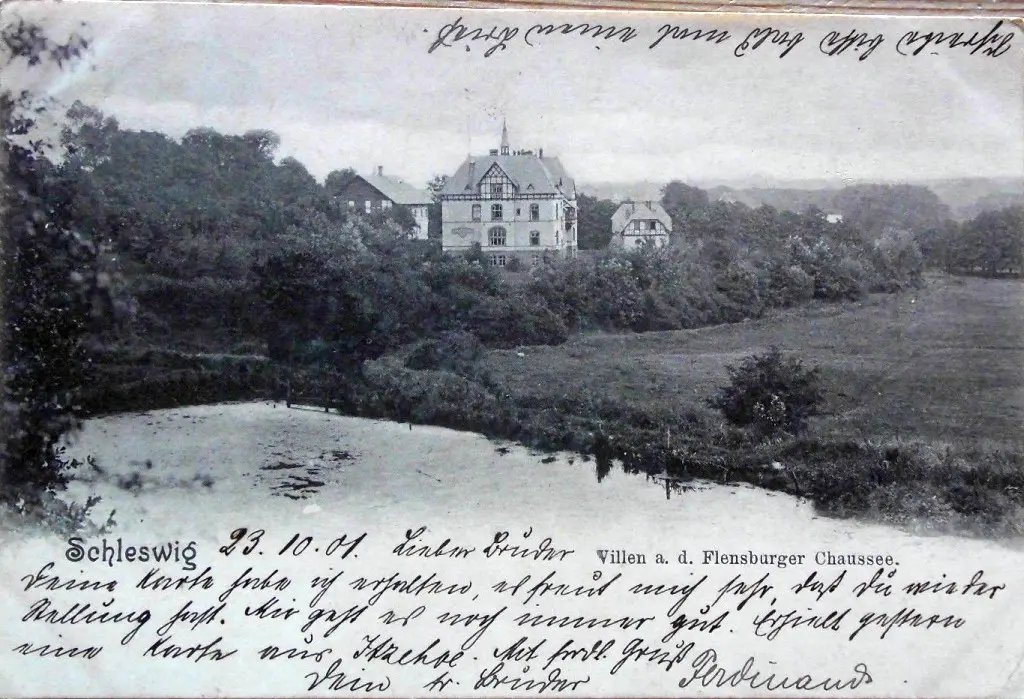 Schreibe bitte bald mal einen Brief.
Schleswig 23.10.01. Lieber Bruder Villen a. d. Flensburger Chaussee.
Deine Karte habe ich erhalten, es freut mich sehr, daß Du wieder
Stellung hast. Mir geht es noch immer gut. Erhielt gestern
eine Karte aus Itzehoe. Mit frdl. Gruß
Dein tr. Bruder Ferdinand